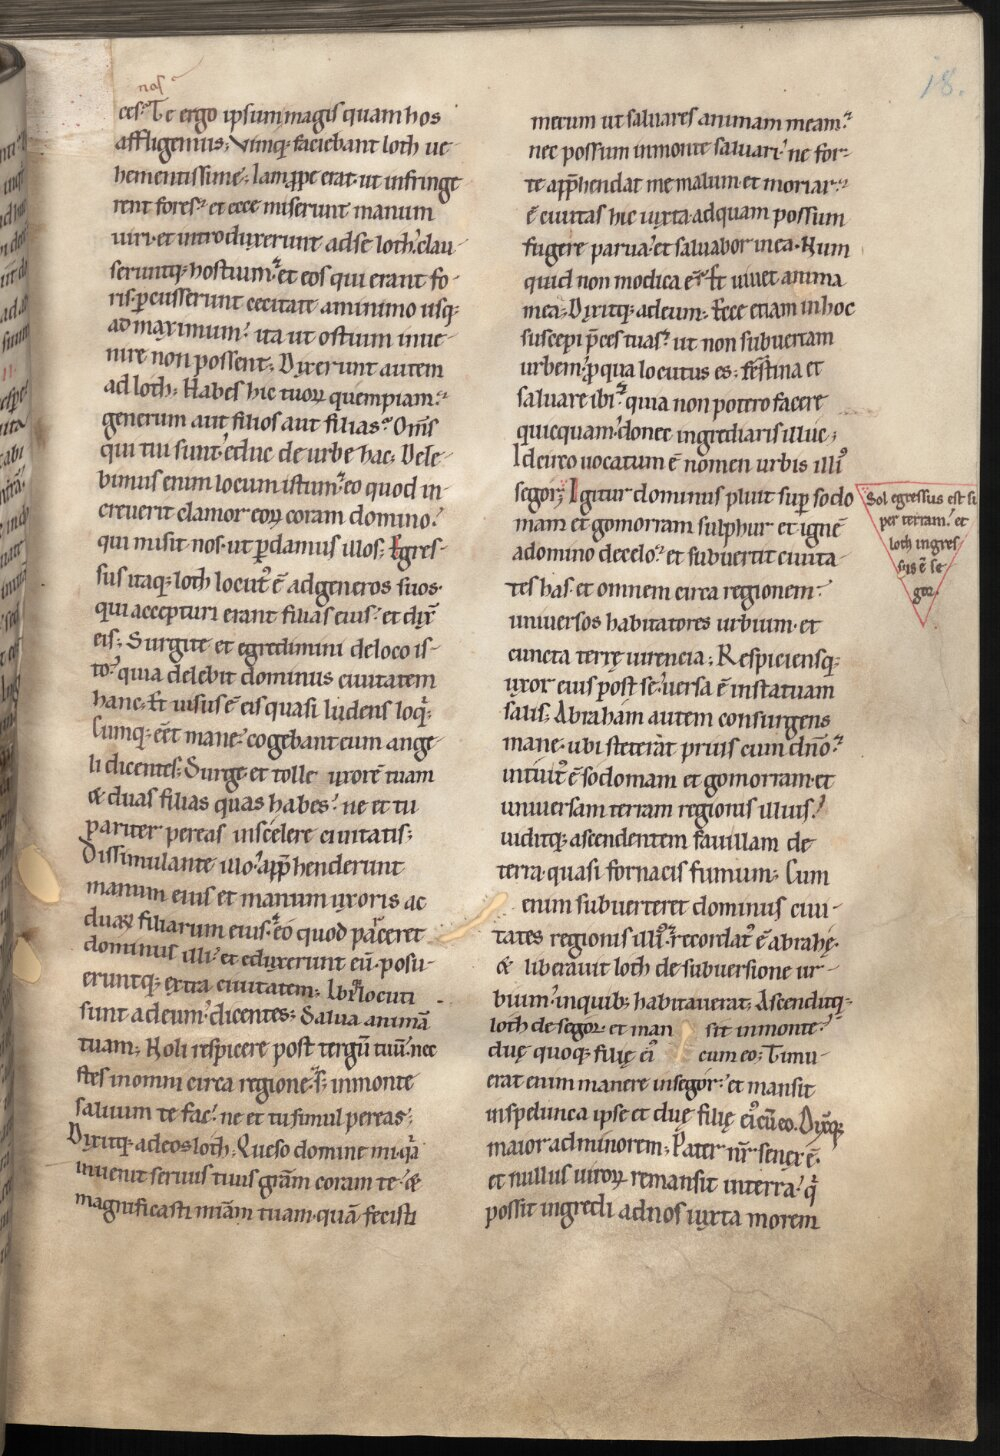 18.
nos
ces. Te ergo ipsum magis quam hos
affligemus; Vimq; faciebant loth ue-
hementissime; Iam ꝓpe erat ut infringe-
rent fores. et ecce miserunt manum
uiri. et introduxerunt ad se loth. clau-
seruntq; hostium. et eos qui erant fo-
ris. ꝑcusserunt cecitate a minimo usq;
ad maximum. ita ut ostium inue-
nire non possent; Dixerunt autem
ad loth; Habes hic tuoꝝ quempiam.
generum aut filios aut filias. Om̅s
qui tui sunt. educ de urbe hac; Dele-
bimus enim locum istum. eo quod in-
creuerit clamor eoꝝ coram domino.
qui misit nos. ut ꝑdamus illos; Egres-
sus itaq; loth locut᷒ ē ad generos suos.
qui accepturi erant filias eius. et dix̅
eis; Surgite et egredimini de loco is-
to. quia delebit dominus ciuitatem
hanc; Et uisus ē eis quasi ludens loq̅;
Cumq; eēt mane. cogebant eum ange-
li dicentes; Surge et tolle uxorē tuam
& duas filias quas habes. ne et tu
pariter pereas in scelere ciuitatis;
Dissimulante illo. app̅henderunt
manum eius et manum uxoris ac
duaꝝ filiarum eius. eo quod parceret
dominus illi. et eduxerunt eū. posu-
eruntq; extra ciuitatem; Ibi locuti
sunt ad eum. dicentes; Salua animā
tuam; Noli respicere post tergū tuū. nec
stes in omni circa regione. s; in monte
saluum te fac. ne et tu simul pereas;
Dixitq; ad eos loth; Queso domine mi. q̅a
inuenit seruus tuus gr̅am coram te. &
magnificasti mi̅am tuam. quā fecisti
mecum ut saluares animam meam.
nec possum in monte saluari. ne for-
te app̅hendat me malum. et moriar.
ē ciuitas hic iuxta. ad quam possum
fugere parua. et saluabor in ea. Num
quid non modica ē. Et uiuet anima
mea; Dixitq; ad eum; Ecce etiam in hoc
suscepi p̅ces tuas. ut non subuertam
urbem. ꝓ qua locutus es; festina et
saluare ibi. quia non potero facere
quicquam. donec ingrediaris illuc;
Idcirco uocatum ē nomen urbis illi᷒
segor; Igitur dominus pluit sup̅ sodo
mam et gomorram sulphur et ignē
a domino de celo. et subuertit ciuita-
tes has. et omnem circa regionem.
uniuersos habitatores urbium. et
cuncta terrę uirencia; Respiciensq;
uxor eius post se. uersa ē in statuam
salis; Abraham autem consurgens
mane. ubi steterat prius cum dn̅o.
intuit᷒ ē sodomam et gomorram. et
uniuersam terram regionis illius.
uiditq; ascendentem fauillam de
terra. quasi fornacis fumum; Cum
enim subuerteret dominus ciui-
tates regionis illi᷒. recordat᷒ ē abrahę.
& liberauit loth de subuersione ur-
bium. in quib; habitauerat; Ascenditq;
loth de segor. et man sit in monte.
duę quoq; filię ei᷒ cum eo; Timu-
erat enim manere in segor. et mansit
in spelunca ipse et duę filię ei᷒ cū eo. Dixq;
maior ad minorem; Pater nr̅ senex ē.
et nullus uiroꝝ remansit in terra. q̅
possit ingredi ad nos iuxta morem
Sol egressus est su
per terram. et
loth ingres
sus ē se
gor.